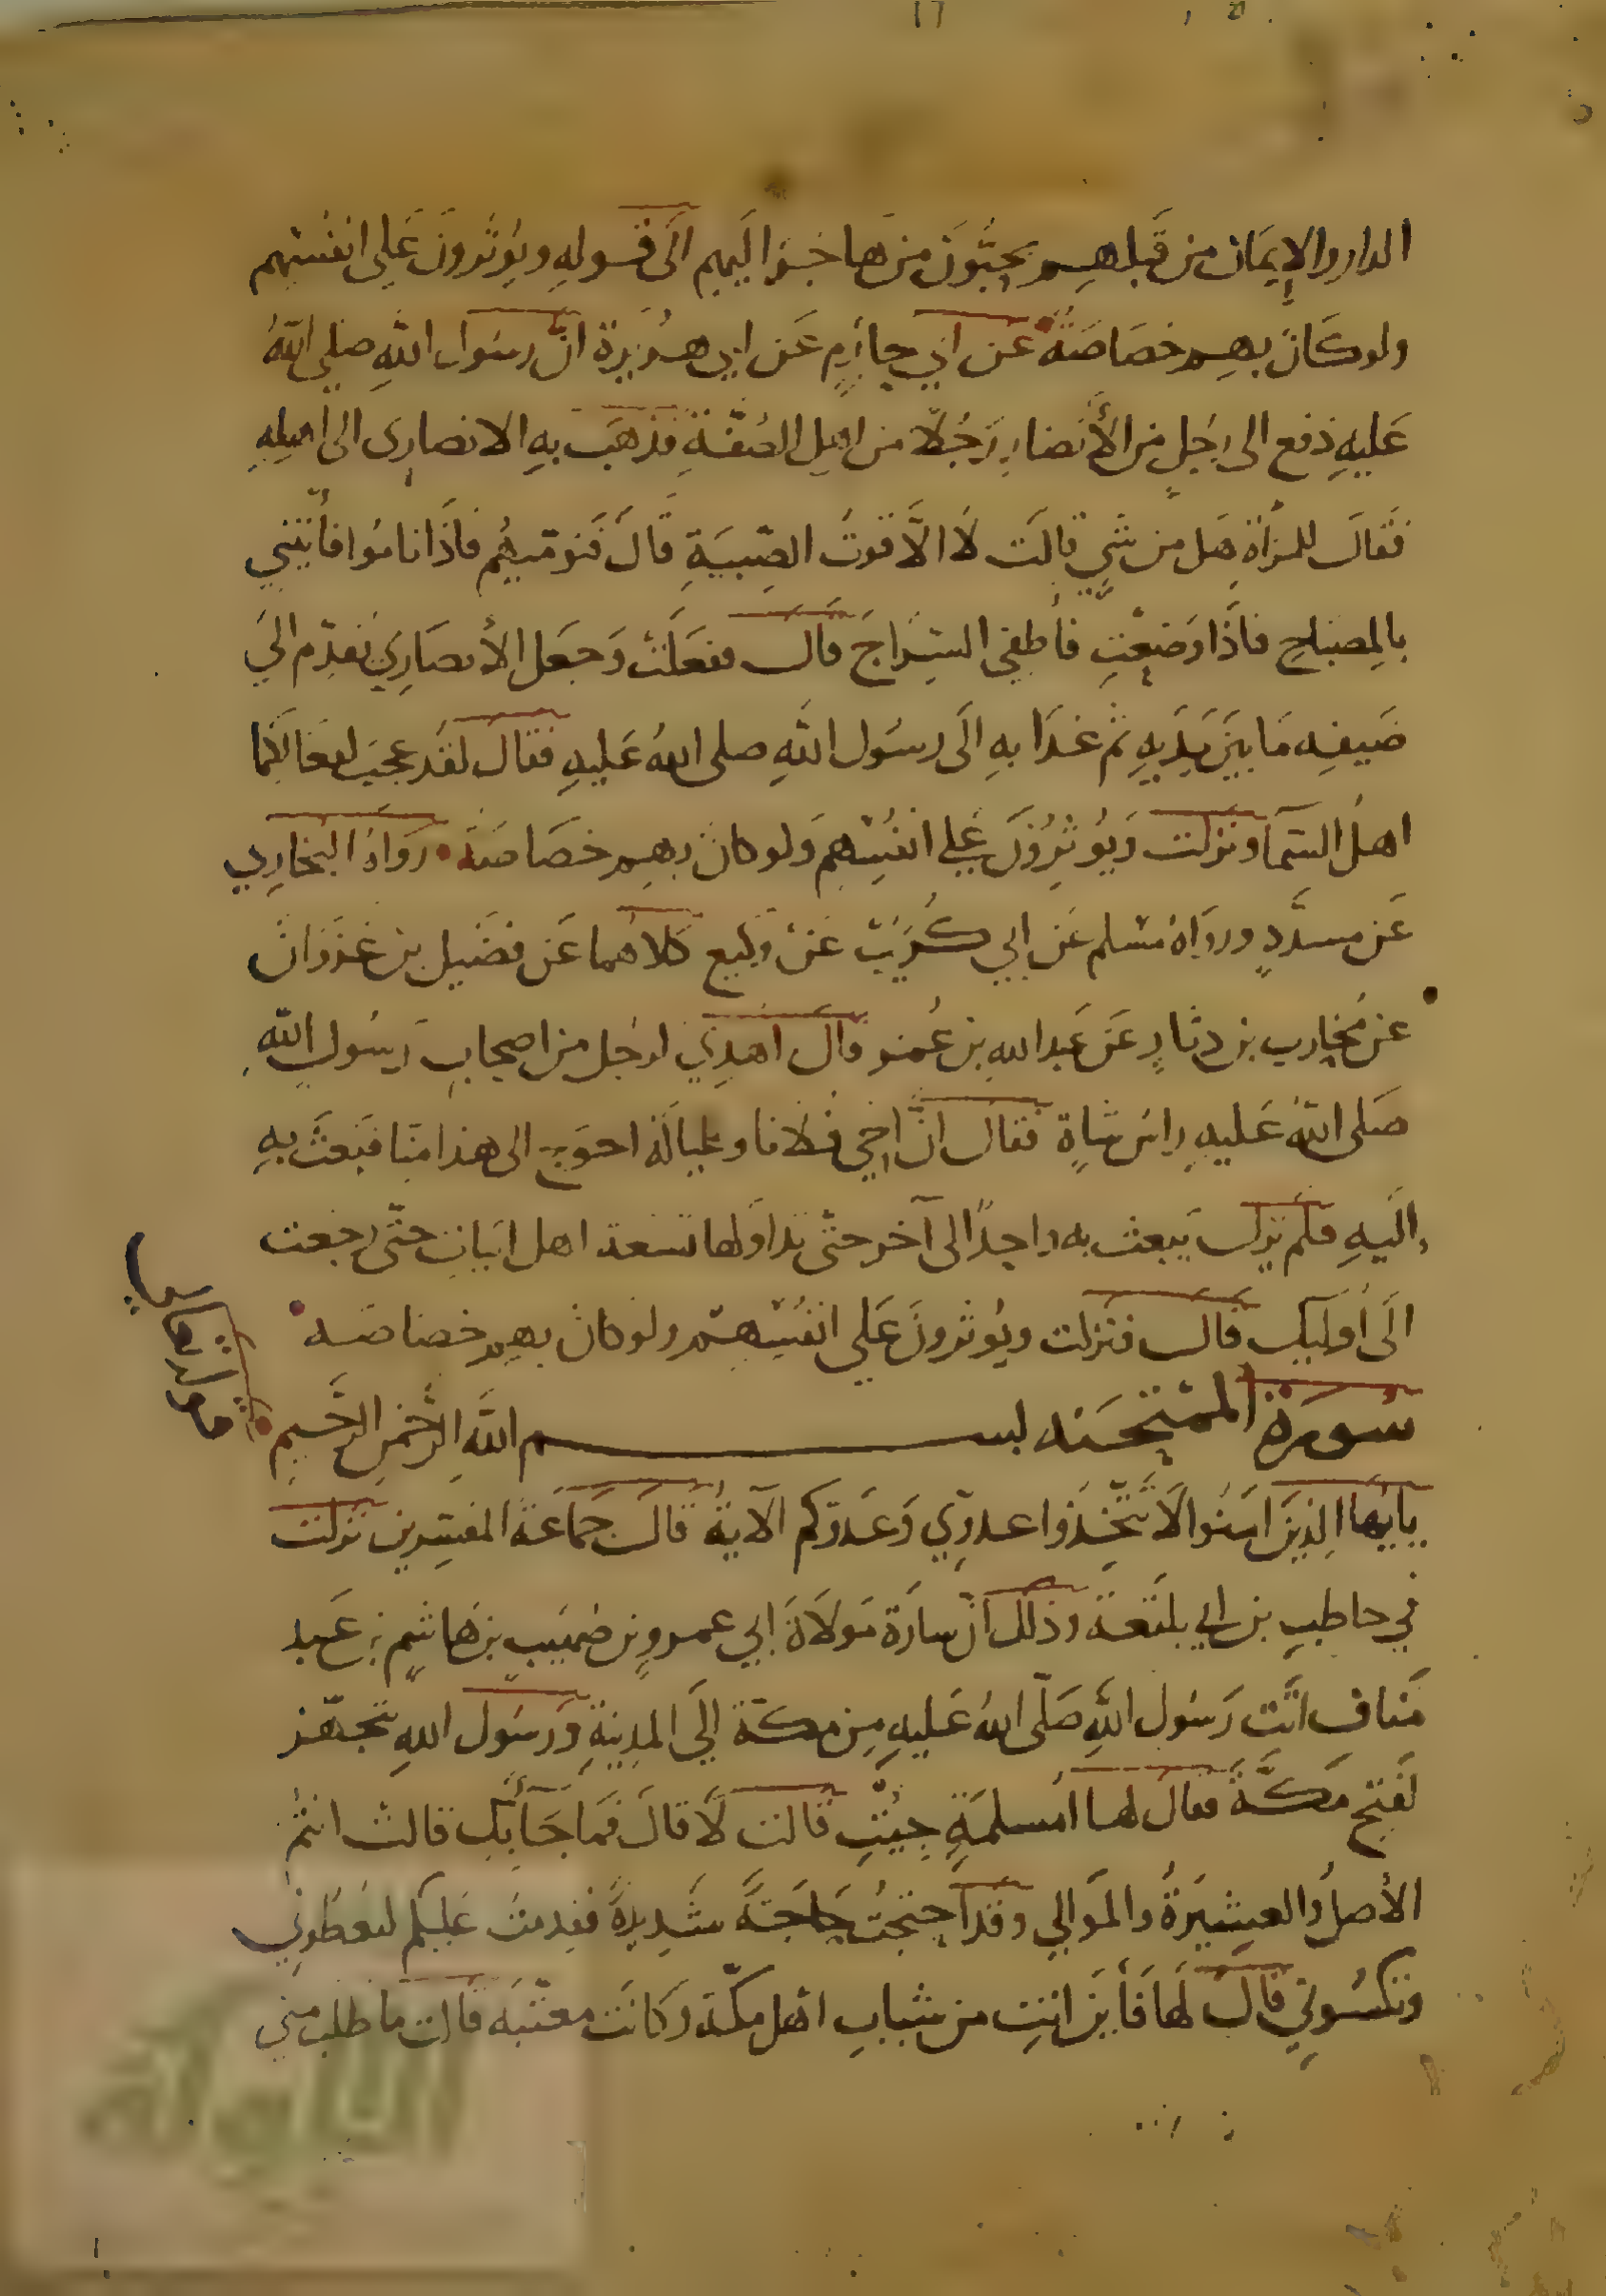 الدار والإيمان من قبلهم يحبون من هاجر اليهم الى قوله ويؤثرون على انفسهم
ولو كان بهم خصاصة عن ابي حازم عن ابي هريرة ان رسول الله صلى الله
عليه دفع الى رجل من الأنصار رجلا من اهل الصفة فذهب به الانصاري الى اهله
فقال للمرأة هل من شي قالت لا الا قوت الصبية قال فنوميهم فاذا ناموا فأتيني
بالمصباح فاذا وضعت فأطفي السراج قال ففعلت وجعل الأنصاري يقدم الى
ضيفه ما بين يديه ثم غدا به الى رسول الله صلى الله عليه فقال لقد عجب لفعالكما
اهل السما ونزلت ويؤثرون على انفسهم ولو كان بهم خصاصة رواه البخاري
عن مسدد ورواه مسلم عن ابي كريب عن وكيع كلاهما عن فضيل بن غزوان
عن محارب بن دثار عن عبد الله بن عمر قال اهدي لرجل من اصحاب رسول الله
صلى الله عليه راس شاة فقال ان اخي فلانا وعياله احوج الى هذا منا فبعث به
اليه فلم يزل يبعث به واحدا الى آخر حتى تداولها تسعة اهل ابيات حتى رجعت
الى أوليك قال فنزلت ويؤثرون على انفسهم ولو كان بهم خصاصه
سورة الممتحنه بسم الله الرحمن الرحيم
يايها الذين امنوا لا تتخذوا عدوي وعدوكم الآية قال جماعة المفسرين نزلت
في حاطب بن ابي بلتعة وذلك ان سارة مولاة ابي عمرو بن ضيب بن هاشم بن عبد
مناف اتت رسول الله صلى الله عليه من مكة الى المدينة ورسول الله يتجهز
لفتح مكة فقال لها امسلمة جيت قالت لا قال فما جآ بك قالت انتم
الأصل والعشيرة والموالي وقد احتجت حاجة شديدة فقدمت عليكم لتعطوني
وتكسوني قال لها فأين انت من شباب اهل مكة وكانت مغنيه قالت ما طلب مني